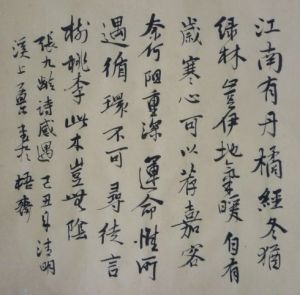 江南有丹橘經冬猶
綠林豈伊地氣暖自有
歲寒心可以荐嘉客
奈何阻重深運命惟所
遇循環不可尋徒言
樹桃李此木豈無陰
張九齡詩感遇己丑年清明
溪上